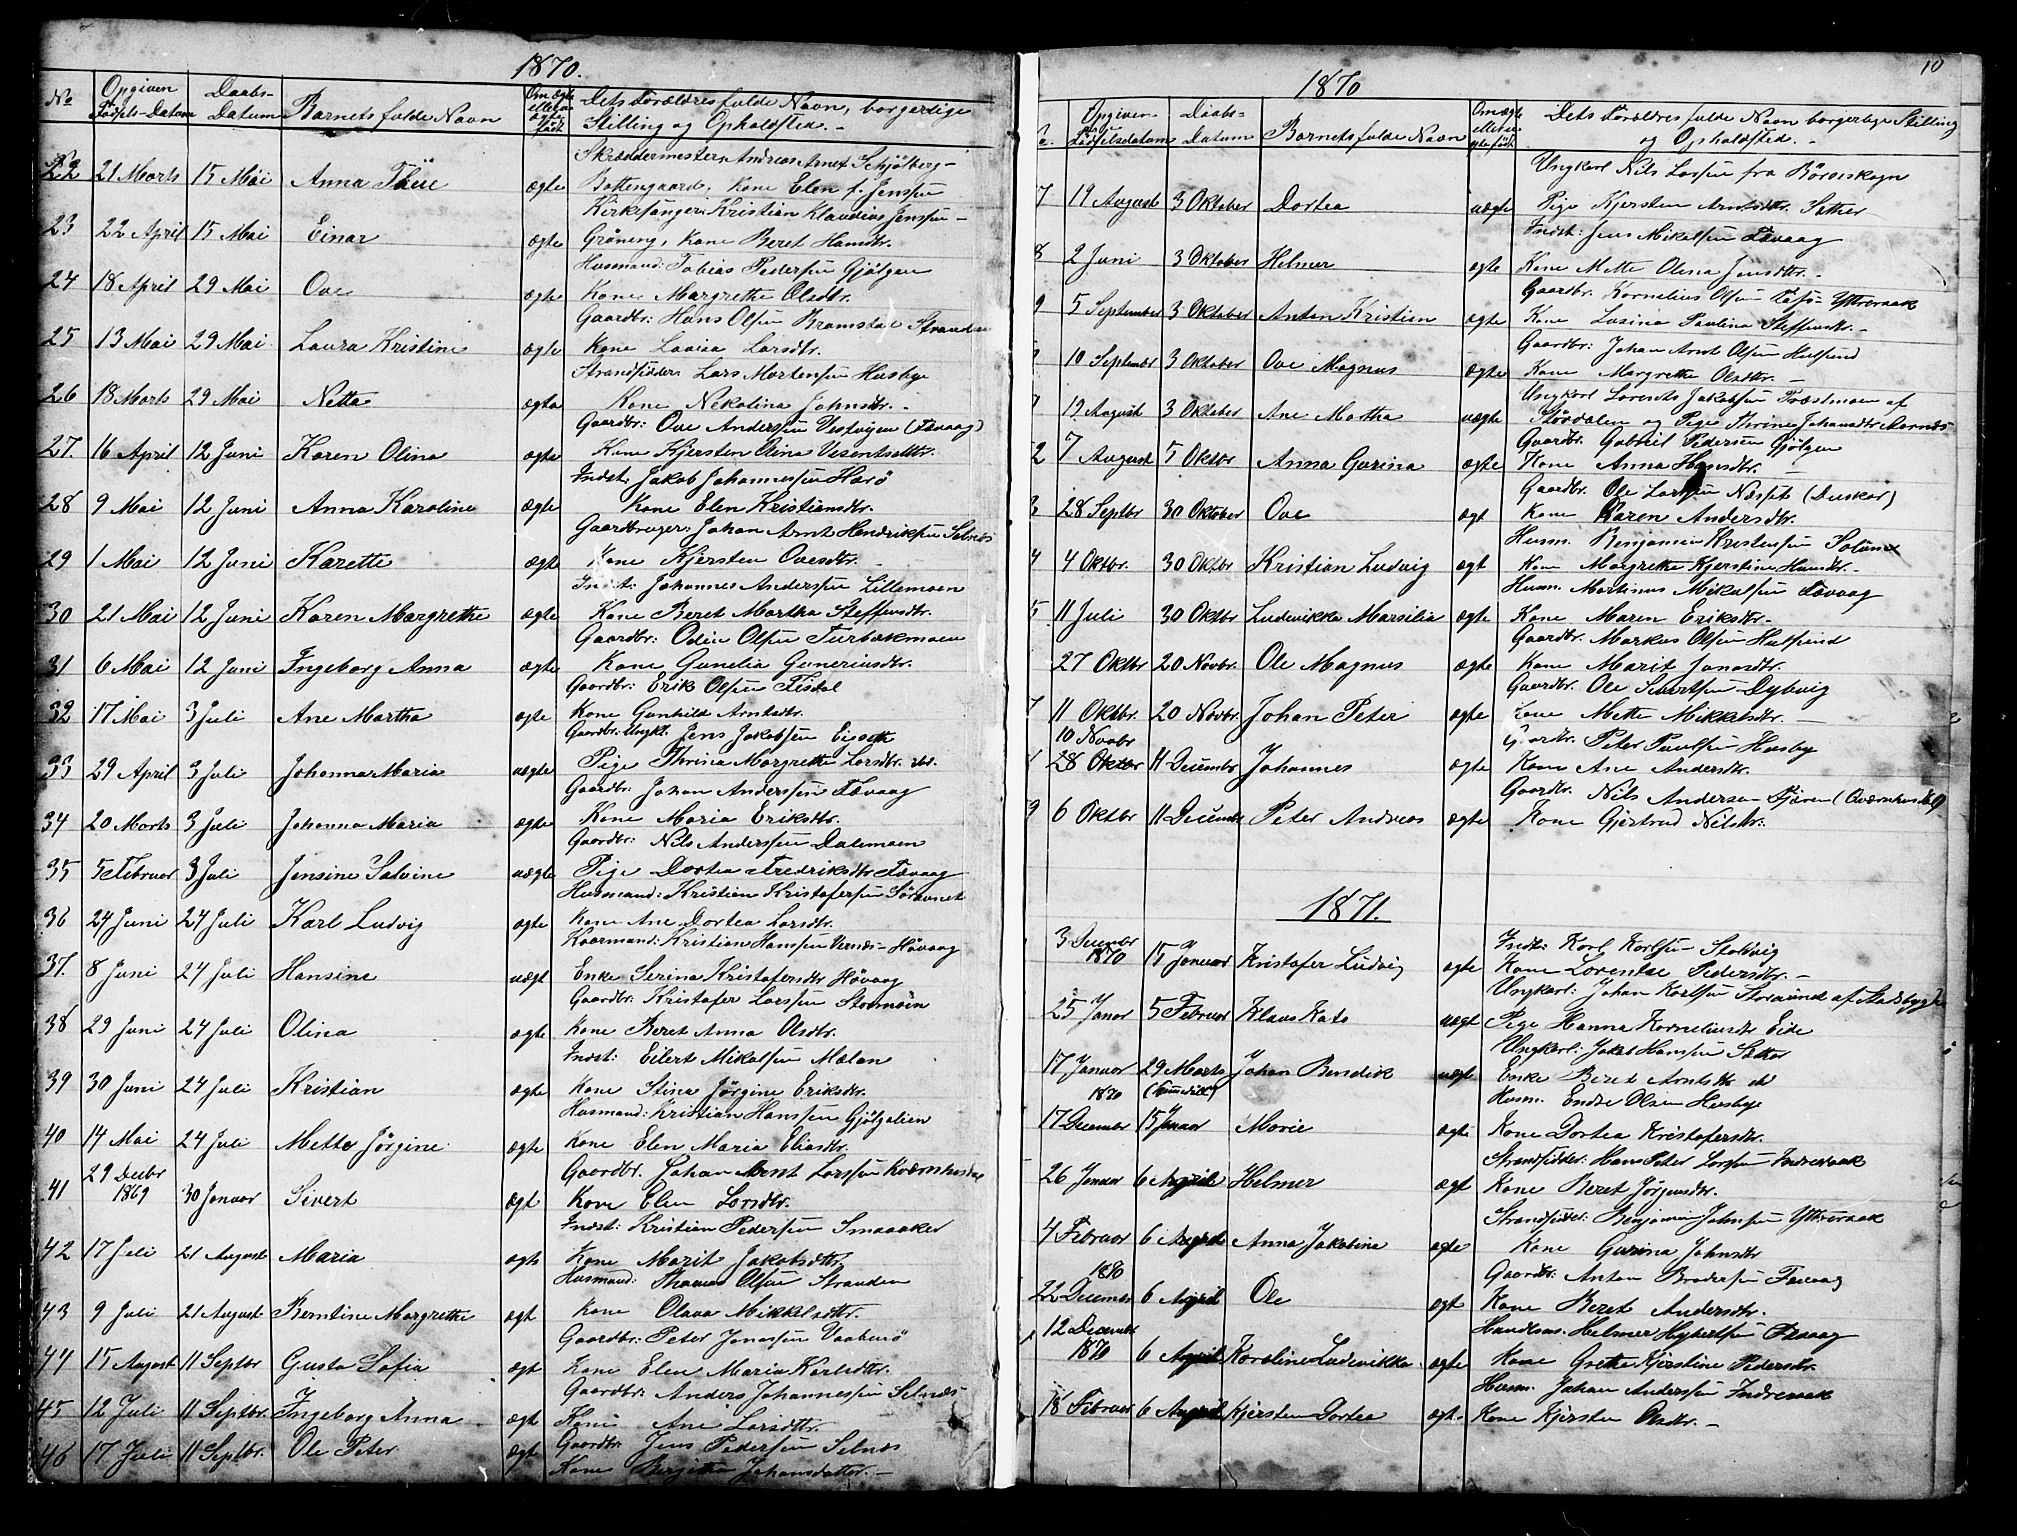 1870.
No Opgiven Fødsels-Datum Daabs-Datum Barnets fulde Navn Om ægte eller uægte født Dets Forældres fulde Navn, borgerlige Stilling og Opholdsted.
Skræddermester Andreas Arnet Schjølberg
22 21 Marts 15 Mai Anna ægte Bottengaard, Kone Elen f. Jenssen
Kirkesanger Kristian Klaudius Jenssen
23 22 April 15 Mai Einar ægte Grøneng, Kone Beret Hansdtr.
Husmand: Tobias Pedersen Gjølgen
24 18 April 29 Mai Ove ægte Kone Margrethe Olsdtr.
Gaardbr: Hans Olsen Bramstad Stranden
25 13 Mai 29 Mai Laura Kristine ægte Kone Lovisa Larsdtr.
Strandsidder Lars Mortensen Husbye
26 18 Marts 29 Mai Netta ægte Kone Nekolina Johnsdtr.
Gaardbr: Ove Anderssen Vestvigen (Tævaag)
27. 16 April 12 Juni Karen Olina ægte Kone Kjersten Olina
Indst. Jakob Johannessen Harø
28 9 Mai 12 Juni Anna Karoline ægte Kone Elen Kristiansdtr.
Gaardbruger: Johan Arnt Hendriksen Selnæs
29 1 Mai 12 Juni Karette ægte Kone Kjersten Ovesdtr.
Indst: Johannes Andersen Lillemoen
30 21 Mai 12 Juni Karen Margrethe ægte Kone Beret Martha Steffensdtr.
Gaardbr: Odin Olsen Turbækmoen
31 6 Mai 12 Juni Ingeborg Anna ægte Kone Gunelia Guneriusdtr.
Gaardbr: Erik Olsen Tisdal
32 17 Mai 3 Juli Ane Martha ægte Kone Gunhild Arntsdtr.
Gaardbr: Ungk. Jens Jakobsen Eisseth
33 29 April 3 Juli Johanna Maria uægte Pige Thrina Margrethe Larsdtr. ibd.
Gaardbr: Johan Anderssen Tævaag
34 20 Marts 3 Juli Johanna Maria ægte Kone Maria Eriksdtr.
Gaardbr: Nils Anderssen Dalemoen
35 5 Februar 3 Juli Jensine Salvine uægte Pige Dortea Fredriksdtr Tævaag
Husmand: Kristian Kristofersen Sørøvnet
36 24 Juni 24 Juli Karl Ludvig ægte Kone Ane Dortea Larsdtr.
Kaarmand: Kristian Hanssen Vernæs-Høvaag
37. 8 Juni 24 Juli Hansine uægt Enke Serina Kristofersdtr Høvaag
Gaardbr: Kristofer Larssen Stormoen
38 29 Juni 24 Juli Olina ægte Kone Beret Anna Olsdtr.
Indst: Eilert Mikalsen Mælan
39 30 Juni 24 Juli Kristian ægte Kone Stina Jørgine Eriksdtr.
Husmand: Kristian Hanssen Gjølgalien
40 14 Mai 24 Juli Mette Jørgine ægte Kone Elen Maria Eliasdtr.
29 Decbr Gaardbr. Johan Arnt Larssen Kværnhusdal
41 1869 30 Januar Sivert ægt Kone Elen Larsdtr.
Indst: Kristian Pedersen Smaaaker
42 17 Juli 21 August Maria ægte Kone Marit Jakobsdtr.
Husmand: Thomas Olsen Stranden
43 9 Juli 21 August Berntine Margrethe ægt Kone Olava Mikkelsdtr.
Gaardbr: Peter Jonassen Vaaburø
44 15 August 11 Septbr Gusta Sofia ægt Kone Elen Maria Karlsdtr.
Gaardbr: Anders Johannessen Selnæs
45 12 Juli 11 Septbr. Ingeborg Anna ægt Kone Ane Larsdtr.
Gaardbr: Jens Pedersen Selnæs
46 17 Juli 11 Septbr. Ole Peter ægte Kone Berjitta Johansdatter.
10
1870
Opgiven Fødselsdatum Daabs-Datum Barnets fulde Navn Om ægte eller uægte født Dets Forældres fulde Navn borgerlige Stilling og Opholdsted.
Ungkarl Nils Larsen fra Børseskogn
7 19 August 3 Oktober Dortea uægte Pige Kjersten Arntsdtr. Sæther
Indst: Jens Mikalsen Tævaag
8 2 Juni 3 Oktober Helmer ægte Kone Mette Olina Jensdtr.
Gaardbr. Kornelius Olsen Yttreraak
9 5 September 3 Oktober Anton Kristian ægte Kone Lusina Paulina Steffensdtr.
Gaardbr: Johan Arnt Olsen Hulsund
10 Septembr 3 Oktober Ove Magnus ægte Kone Margrethe Olsdtr.
Ungkarl Lorents Jakobsen Træstmoen af
19 August 3 Oktober Ane Martha uægte Størdalen og Pige Thrine Johansdtr Aarnæs
Gaardbr. Gabriel Pedersen Gjølgen
2 7 August 5 Oktbr Anna Gurina ægte Kone Anna Hansdtr.
Gaardbr. Ole Larssen Næsset (Duskar)
3 28 Septbr 30 Oktober Ove ægt Kone Karen Andersdtr.
Husm. Benjamin Kristensen Solum
4 4 Oktbr. 30 Oktbr Kristian Ludvig ægt Kone Margrethe Kjerstine Hansdtr.
Husm. Martinus Mikalsen Tævaag
5 11 Juli 30 Oktbr Ludvikka Marsilia ægte Kone Maren Eriksdtr.
Gaardbr. Markus Olsen Hulsund
27 Oktbr 20 Novbr. Ole Magnus ægte Kone Marit Jonasdtr.
Gaardbr. Ole Sivertsen Dybvig
7 11 Oktbr. 20 Novbr. Johan Peter ægte Kone Mette Mikkelsdtr.
10 Novbr Gaardbr. Peter Paulsen Husby
28 Oktbr 11 Decembr Johannes ægte Kone Ane Andersdtr.
Gaardbr. Nils Andersen Fjæren (Qværnhusdal)
9 6 Oktbr 11 Decembr Peter Andreas ægte Kone Gjertrud Nilsdtr.
1871.
3 Decembr Indst: Karl Karlsen Stalsvig
1870 15 Januar Kristofer Ludvig ægte Kone Lorentse Pedersdtr.
Ungkarl: Johan Karlsen Strømund af Stadsbygden
25 Januar 5 Februar Klaus Kato uægt Pige Hanna Korneliusdtr Eide
Ungkarl: Jakob Hanssen Sætter
17 Januar 29 Marts Johan Bendik uægte Enke Beret Arntsdtr
1870 Husm. Endre Olsen Husbye
17 Decembr 15 Januar Marie ægte Kone Dortea Kristofersdtr.
Strandsidder: Hans Peter Larssen Indreraak
26 Januar 6 April Helmer ægt Kone Beret Jørgensdtr.
Strandsidder. Benjamin Johnsen Yttreraak
4 Februar 6 April Anna Jakobina ægte Kone Gurina Johnsdtr
1870 Gaardbr. Anton Brodersen Tævaag
22 Decembr 6 April Ole ægt Kone Beret Andersdtr.
12 Decembr Handelsm. Helmer Hybertsen Tævaag
1870 6 April Karoline Ludevikka ægte Kone Grethe Kjerstine Pedersdtr.
Husm. Johan Anderssen Indreraak
18 Februar 6 April Kjersten Dortea ægt Kone Kjersten Olsdtr.